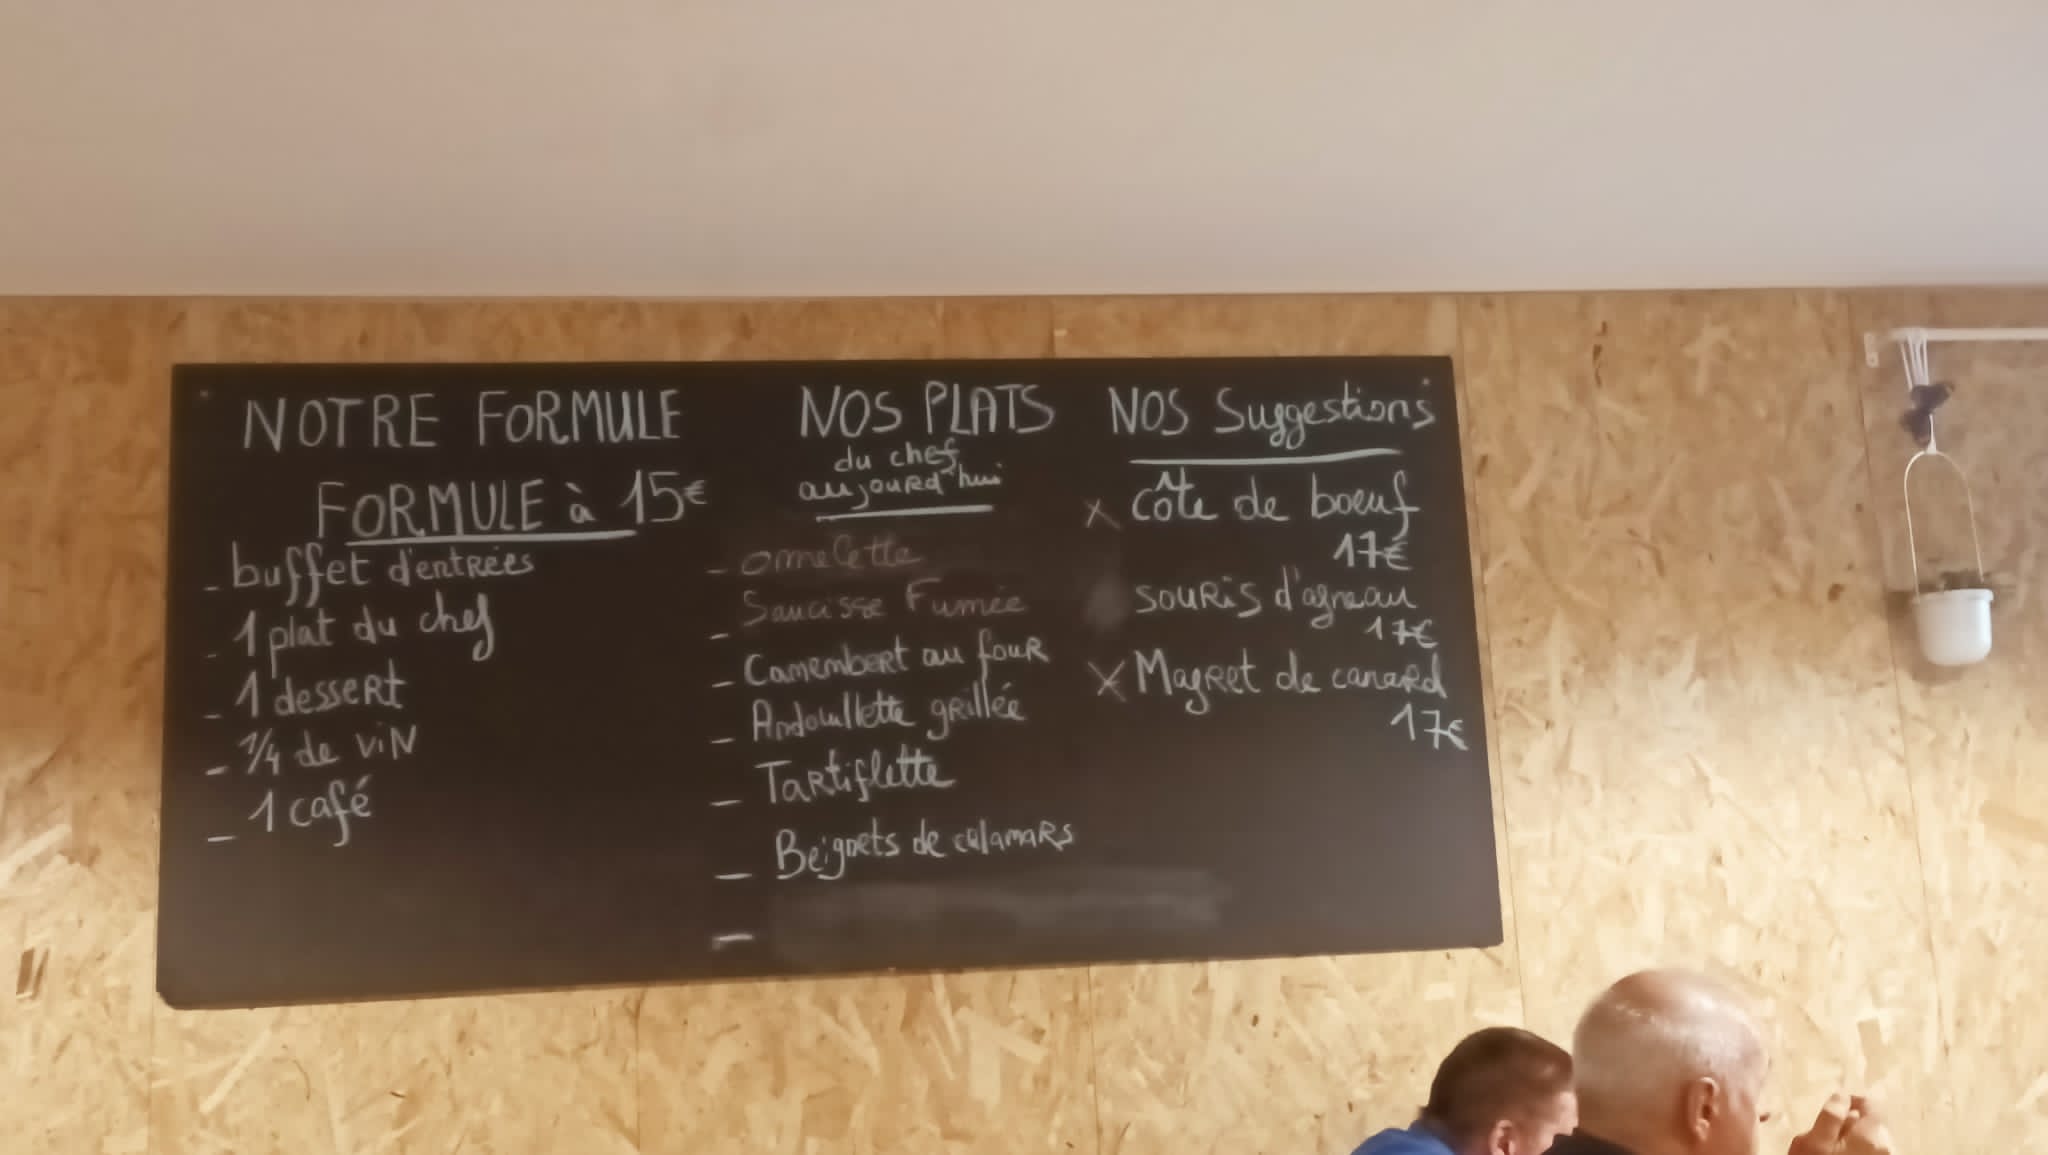 NOTRE FORMULE
FORMULE à 15€
_ buffet d'entrées
_ 1 plat du chef
_ 1 dessert
_ 1/4 de viN
_ 1 café
NOS PLATS
du chef
aujourd'hui
_ omelette
_ Saucisse Fumée
_ Camembert au four
_ Andouillette grillée
_ Tartiflette
_ Beignets de calamars
_
NOS Suggestions
X côte de boeuf
17€
souris d'agneau
17€
X Magret de canard
17€